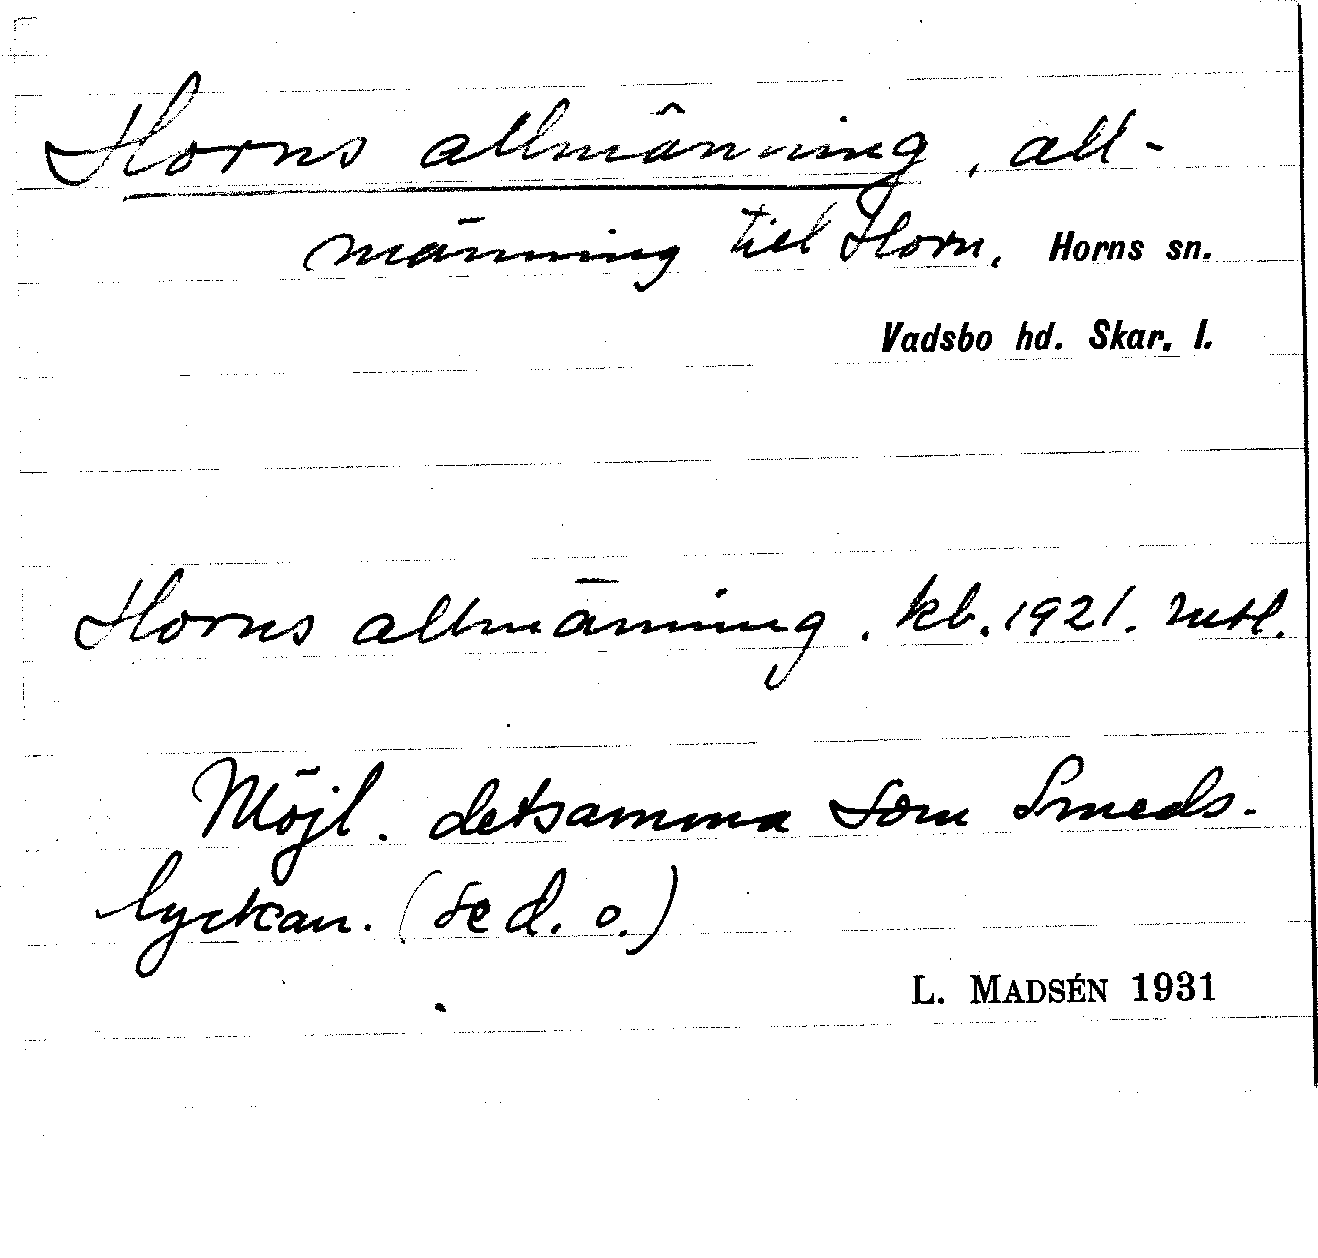 Horns allmänning, all-
männing till Horn. Horns sn.
Vadsbo hd. Skar. l.
Horns allmänning. kb. 1921.
Möjl. detsamma som Smeds-
lyckan. (se d. o.)
L. MADSÉN 1931